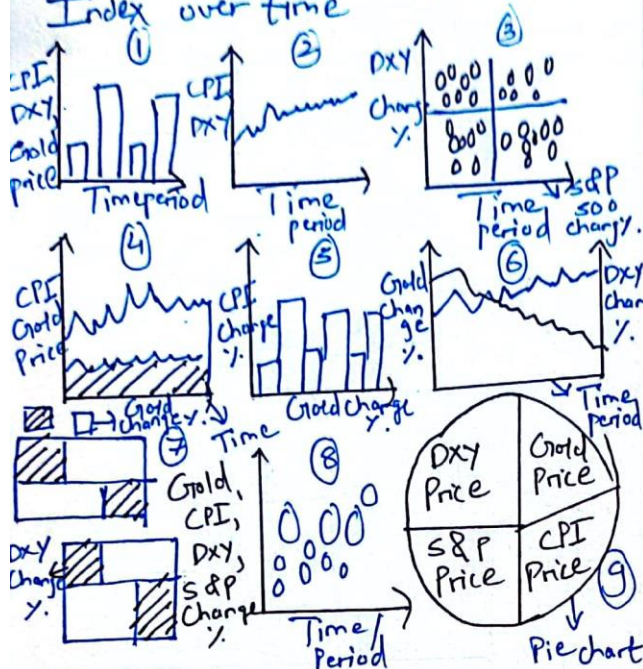 Index over time
①
CPI,
DXY,
Gold
price
Timeperiod
②
CPI,
DXY
Time
period
③
DXY
Change
%.
Time
period
S&P
500
chang%.
④
CPI
Gold
Price
Gold
change%.
Time
⑤
CPI
Change
%.
Gold change
%.
⑥
Gold
Chan
ge
%.
DXY
chan
%.
Time
period
⑦
DXY
Change
%.
Gold,
CPI,
DXY,
S&P
Change
%.
⑧
Time/
Period
DXY
Price
Gold
Price
S&P
Price
CPI
Price
⑨
Pie chart